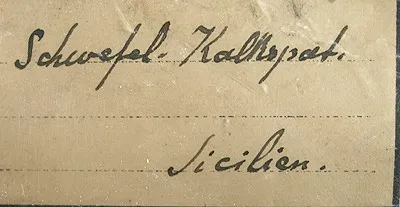 Schwefel. Kalkspat.
Sicilien.